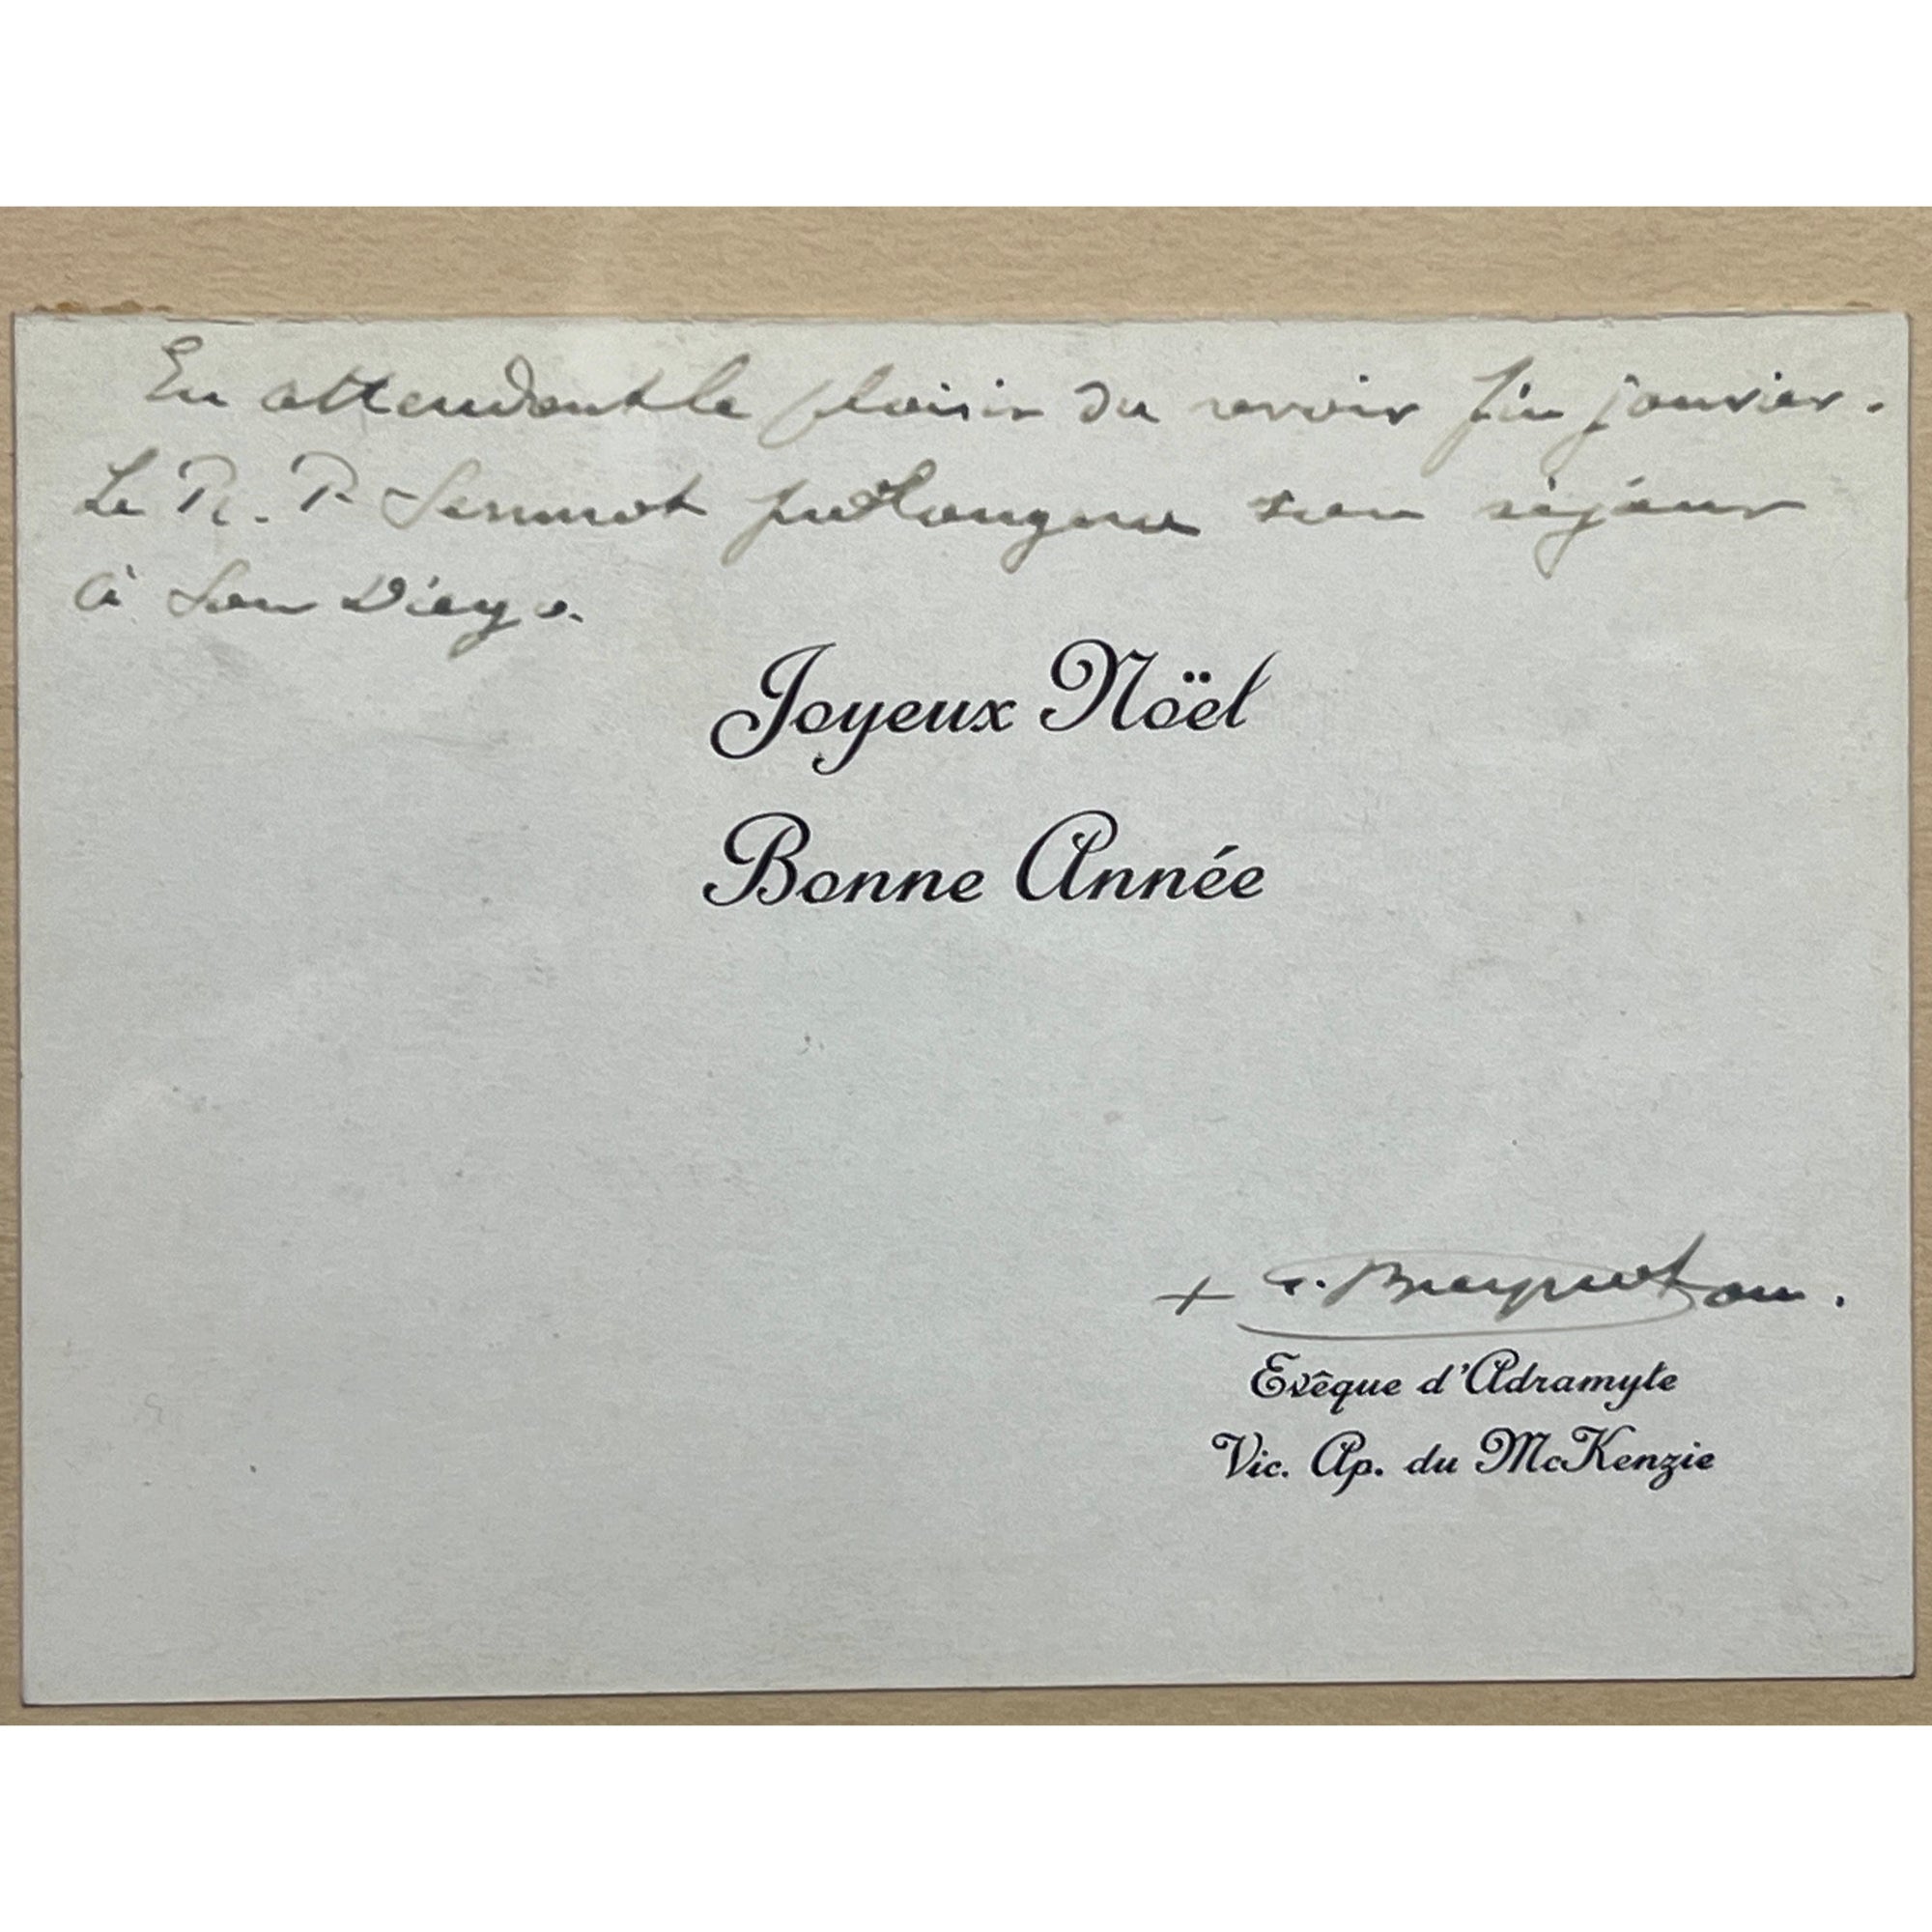 En attendant le plaisir du revoir fin janvier.
Le R. P. prolongera son séjour
à San Diego.
Joyeux Nöel
Bonne Année
+
Evêque d'Adramyte
Vic. Ap. du McKenzie